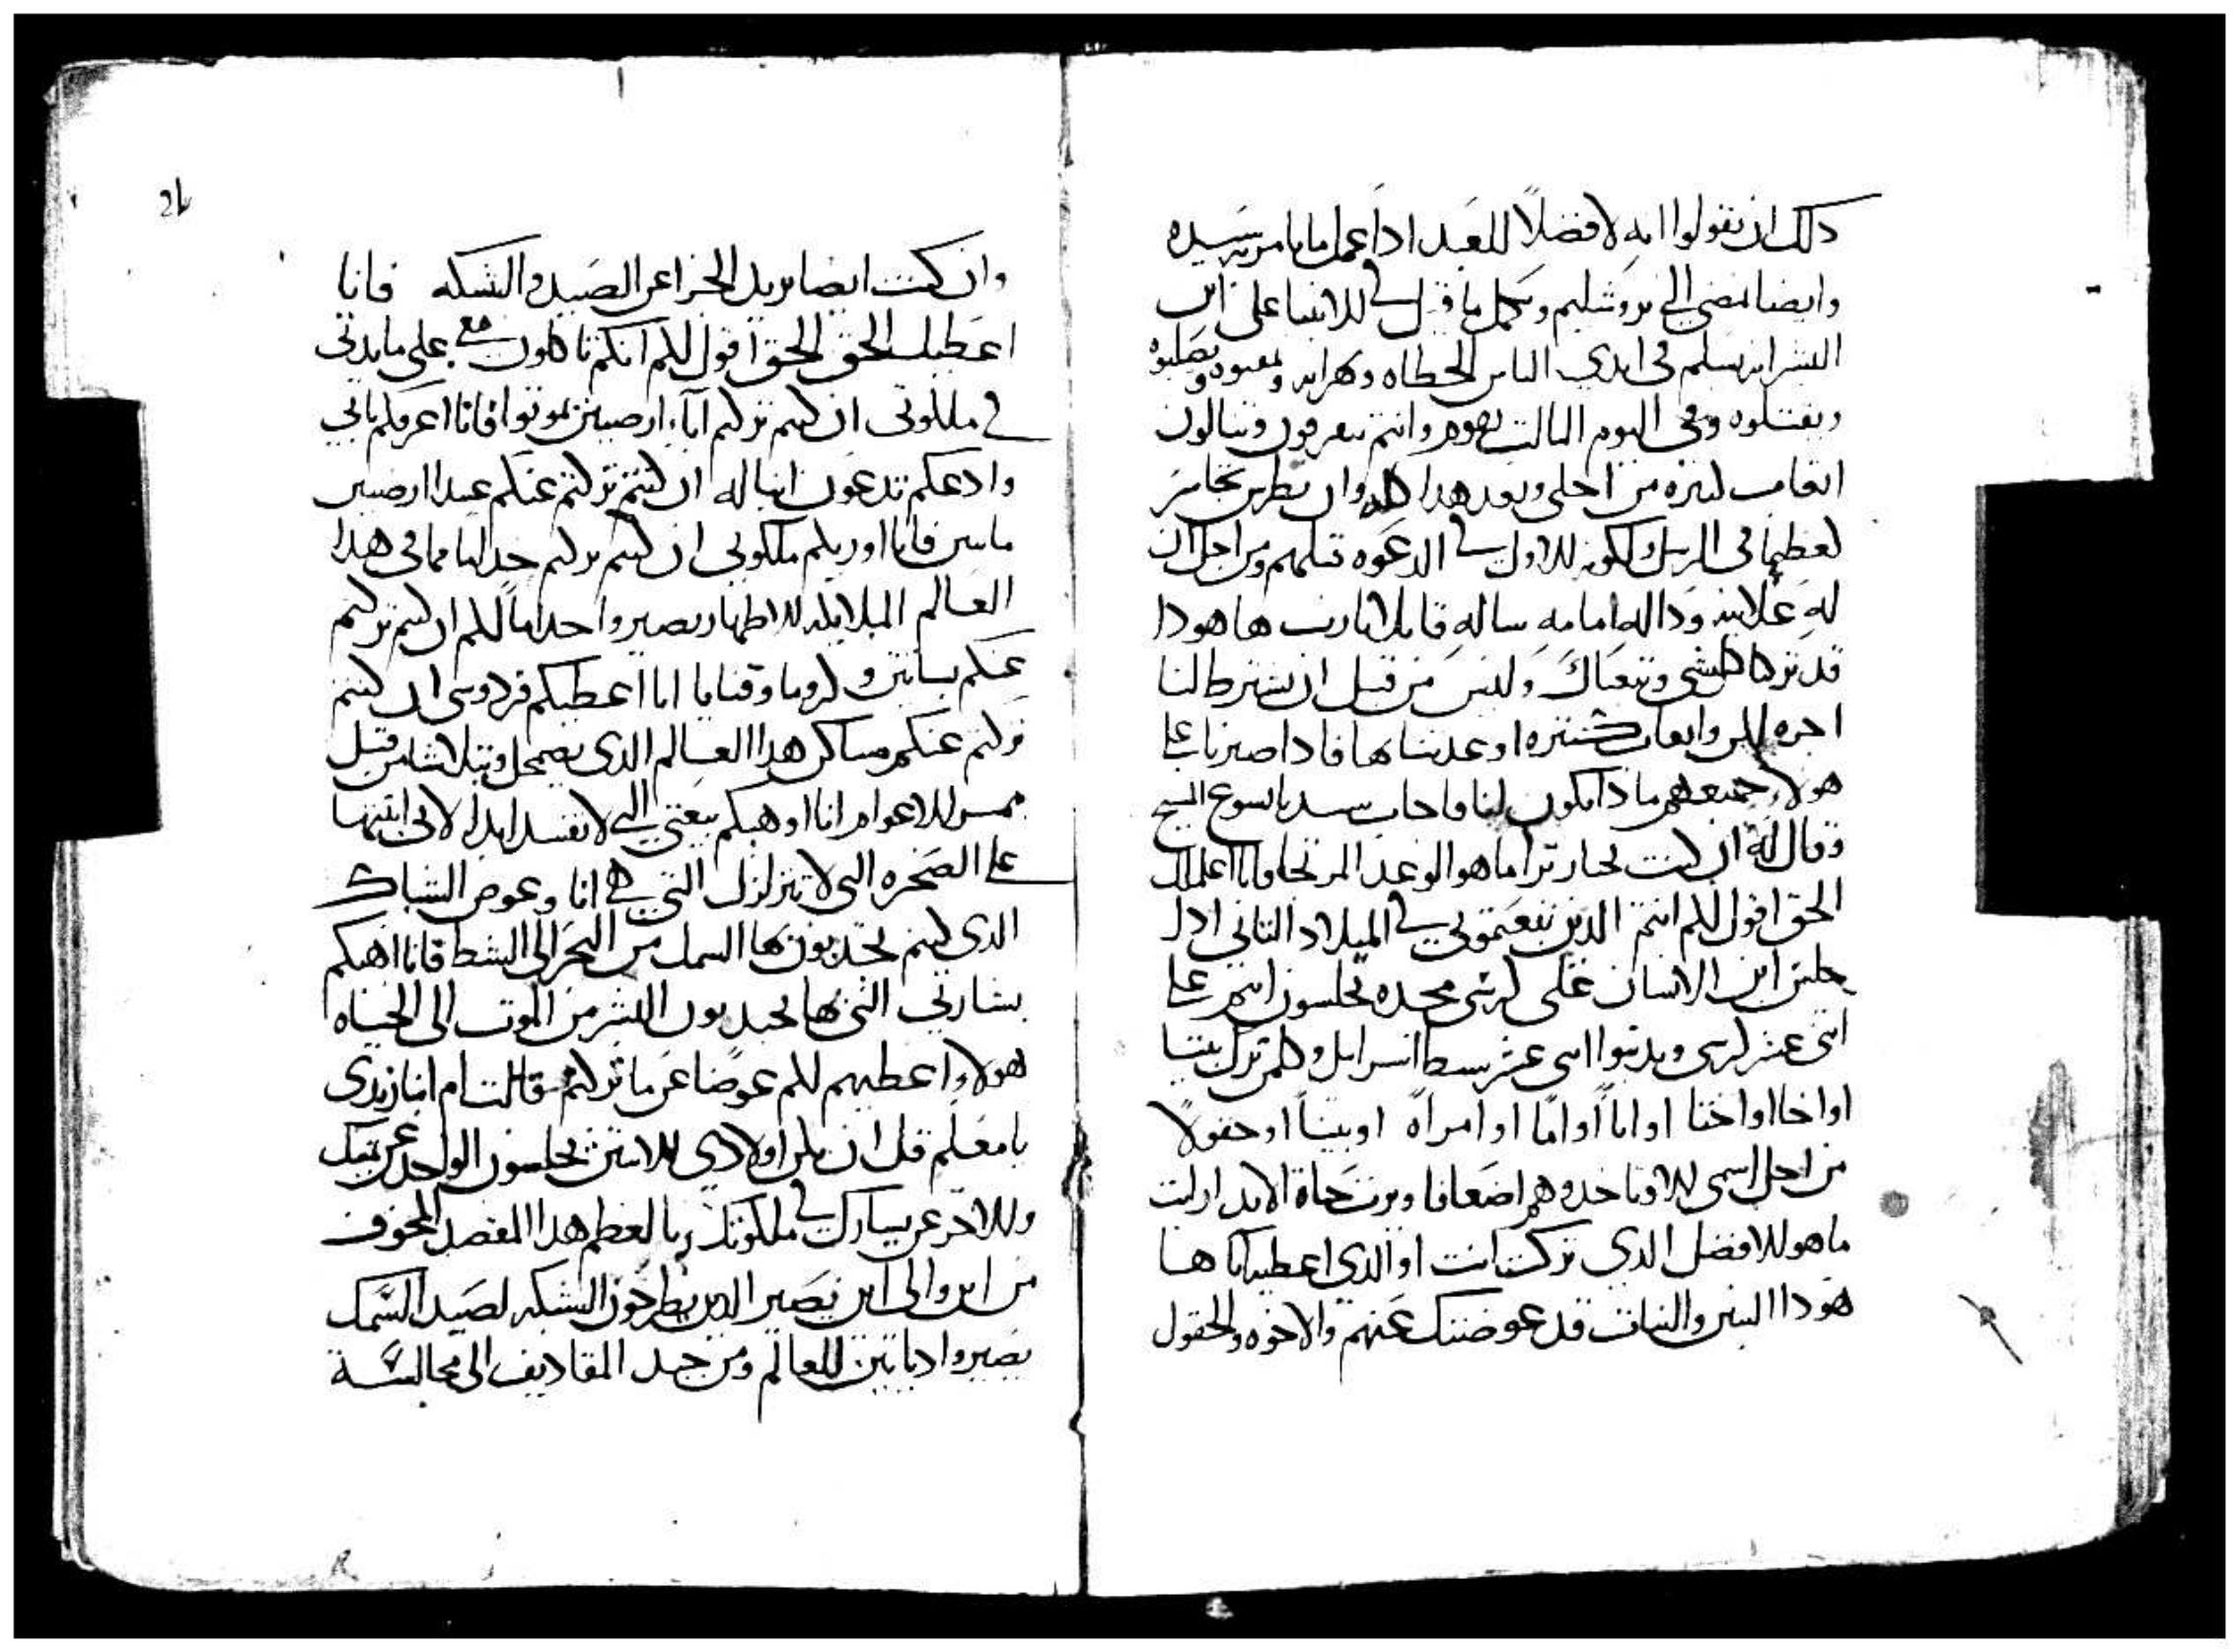 دلك ان تقولوا انه لا فضلاً للعبد اداً عمل ما يامر به سيده
وايضا نمضي الى يروشليم ويكمل ما قيل في الانبيا على ابن
البشر انه يسلم في ايدي الناس الخطاه ويصلبوه
ويقتلوه وفي اليوم التالت يقوم وانتم تتفرقون وتنالون
اتعاب كتيره من اجلي وبعد هدا كله وان بطرس تجاسر
في الرسل لكونه الاول في الدعوه تكلم ومن اجل ان
له علانيه وداله امامه ساله قايلا يارب ها هودا
قد تركنا كل شي وتبعناك وليس من قبل ان تشترط لنا
اجره واتعاب كتيره اوعدتنا بها فادا صبرنا على
هولاء جميعهم مادا يكون لنا فاجاب سيدنا يسوع المسيح
وقال له ان كنت تختار ترا ما هو الوعد فانا اعلمك
الحق اقول لكم انتم الدين تبعتموني في الميلاد التاني ادا
جلس ابن الانسان على كرسي مجده تجلسون انتم على
اتنى عشر كرسي وتدينوا اتنى عشر سبط اسرايل وكلمن ترك بيتا
او اخا او اختا او اباً او امًا او امراةً او بيتاً او حقولاً
من اجل اسمي الا وياخدهم اضعافا ويرت حياة الابد
ما هو الافضل الدي تركت انت او الدي اعطيك انا ها
هودا البنين والبنات قد عوضتك عنهم والاخوه والحقول
2
وان كنت ايضا تريد الجزا عن الصيد والشبكه فانا
اعطيك الحق الحق اقول لكم انكم تاكلون معي على مايدتي
في ملكوتي ان كنتم تركتم آباء ارضيين يموتوا فانا اعرفكم بابي
وادعكم تدعون ابنا له ان كنتم تركتم عنكم عبيدا ارضيين
فانا اوريكم ملكوتي ان كنتم تركتم ممافي هدا
العالم الملايكه الاطهار يصيروا خداماً لكم ان كنتم تركتم
عنكم بساتين وكروما وقنايا انا اعطيكم فردوسي ان كنتم
تركتم عنكم مساكن هدا العالم الدي يضمحل ويتلاشا من قبل
الاعوام انا اوهبكم بيعتي التي لا تفسد ابدا لاني ابنيتها
على الصخره التي لا تتزلزل التي هي انا وعوض الشباك
الدي كنتم تجدبون بها السمك من البحر الى الشط فانا اهبكم
بشارتي التي بها تجدبون البشر من الموت الى الحياه
هولاء اعطيهم لكم عوضا عن ما تركتم فقالت ام ابنا زبدي
يا معلم قل ان يكن اولادي الاتنين يجلسون الواحد عن يمينك
والاخر عن يسارك في ملكوتك يا لعظم هدا الفصل المخوف
من اين والى اين نصير الدين يطرحون الشبكه لصيد السمك
يصيروا ديانين للعالم ومن جبد المقاديف الى مجالسة